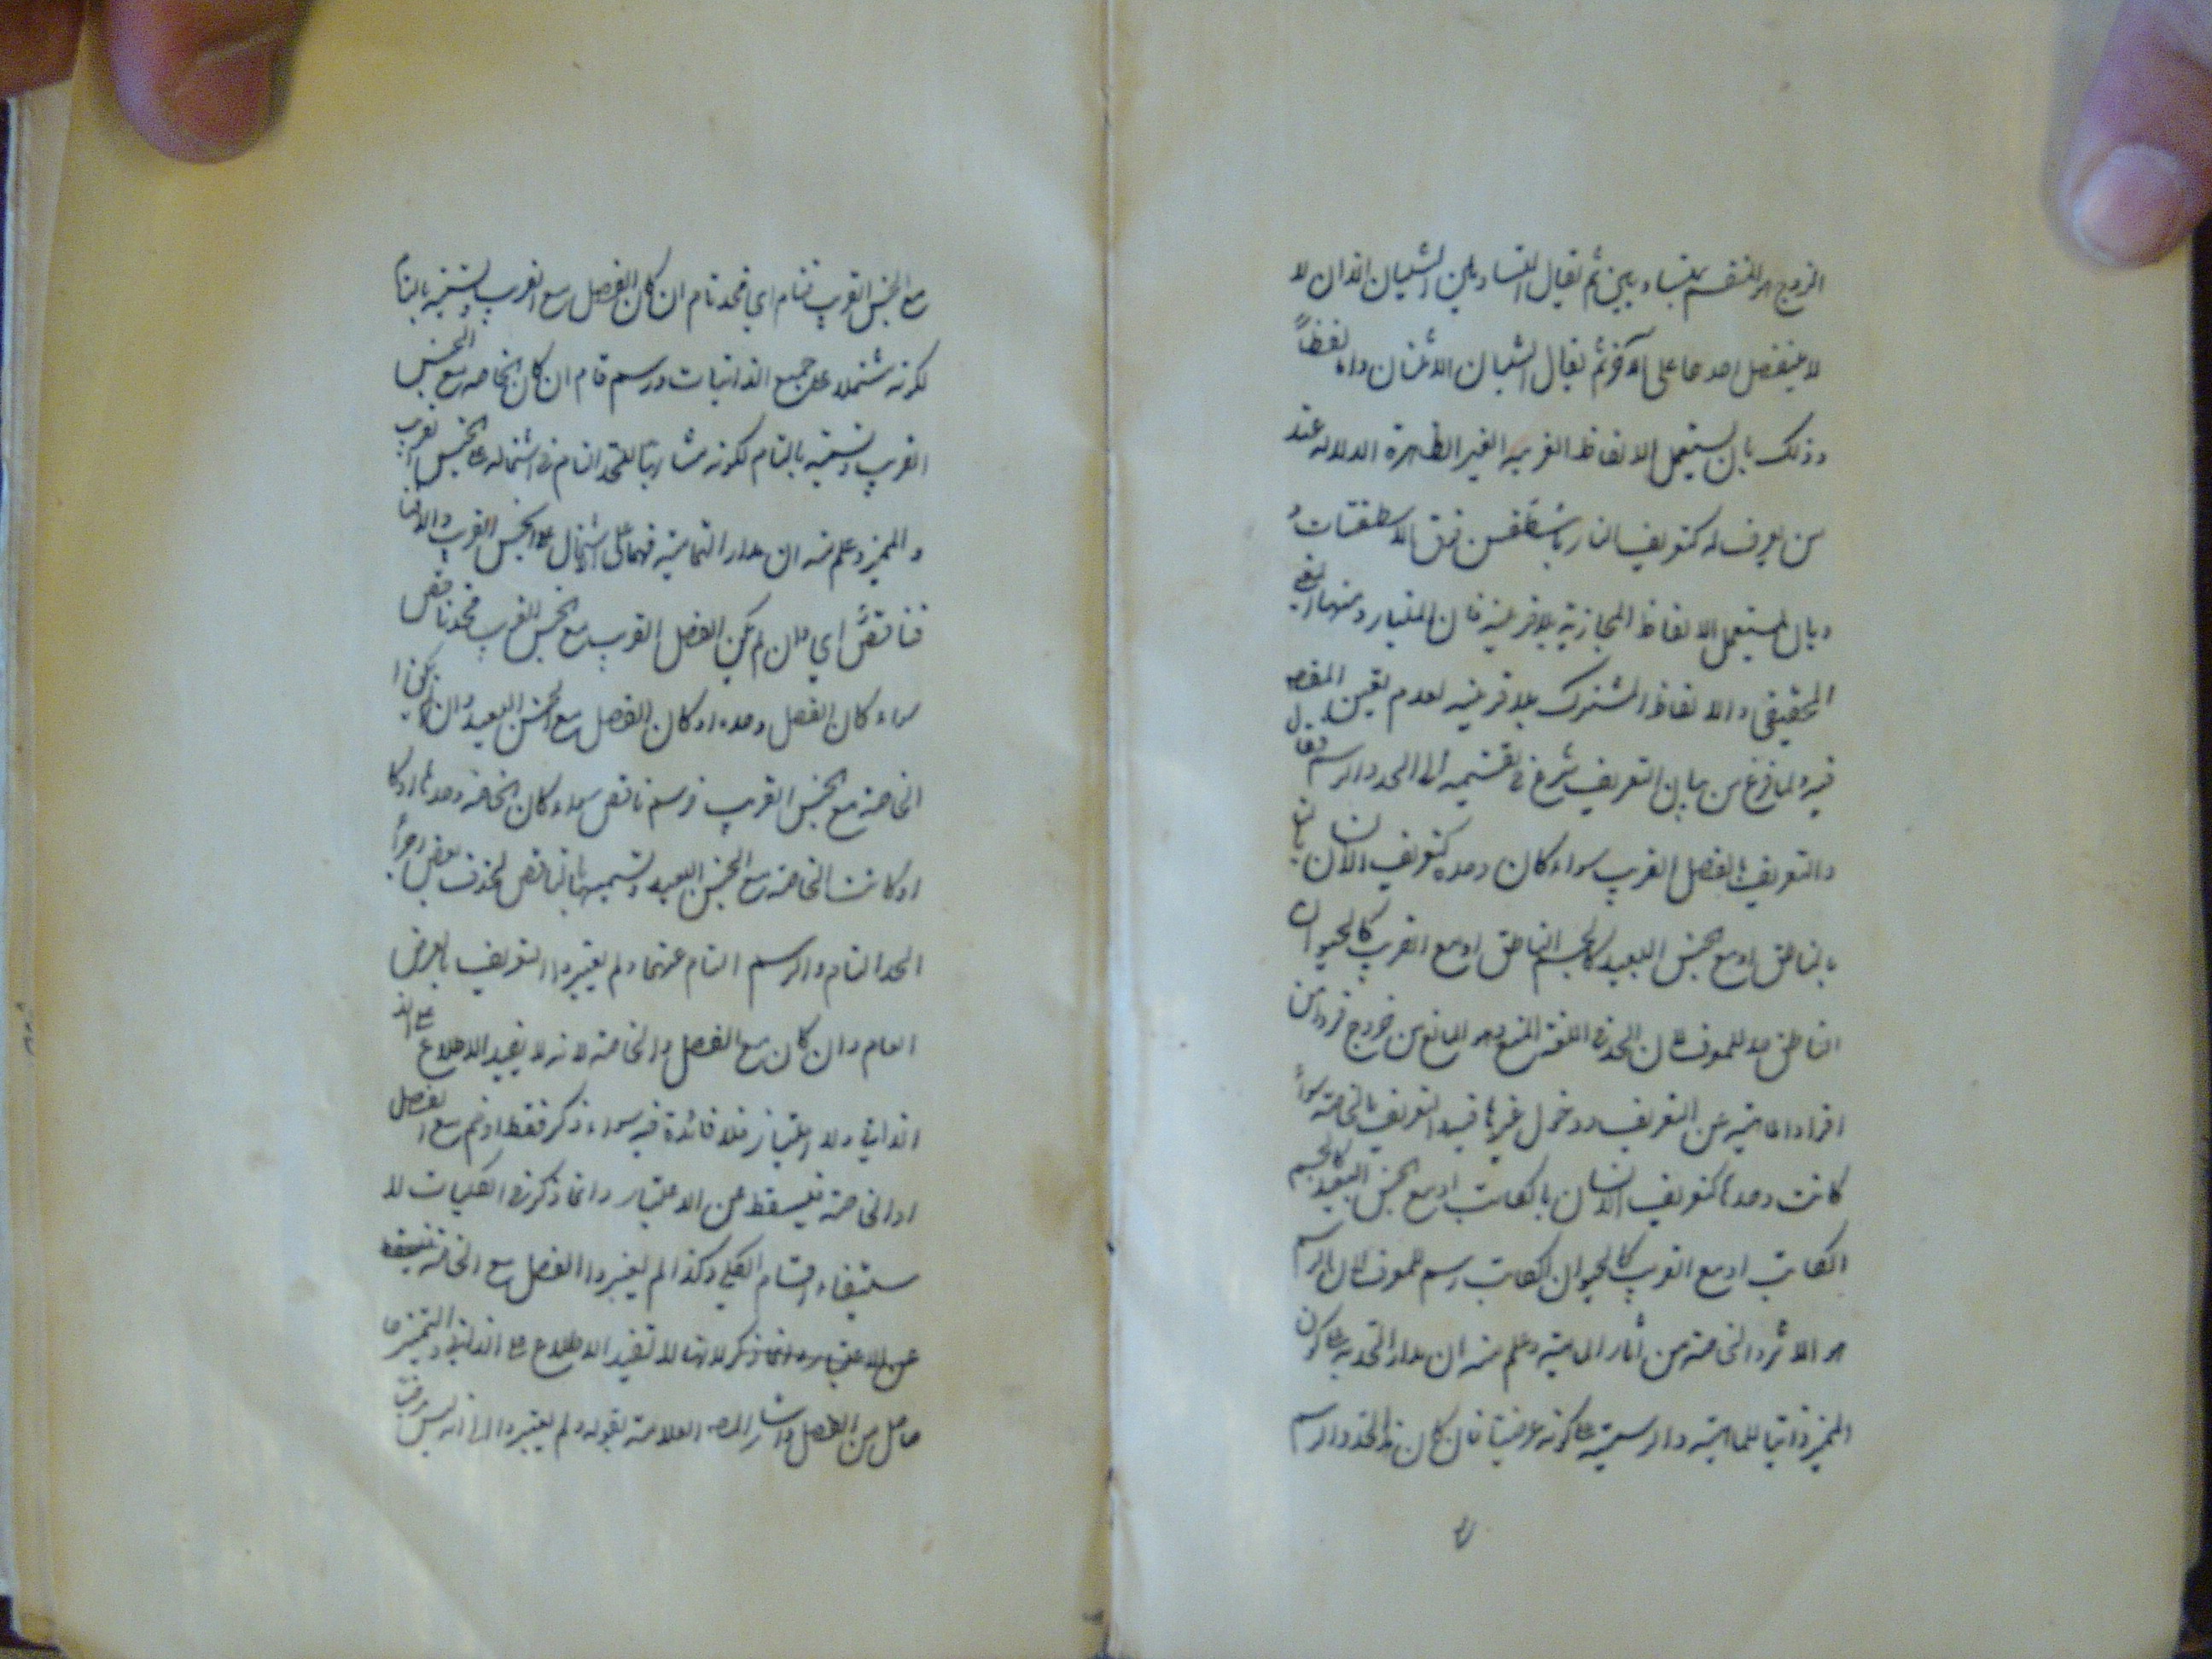 الزوج هو المنقسم بمتساويين ثم يقال المتساويين الشيئان اللذان لا
لا يفضل احدهما على الآخر ثم يقال الشيئان الاثنان واما لفظاً
وذلك بان يستعمل الالفاظ الغريبه الغير الظاهرة الدلاله عند
من يعرف له كتعريف النار باسطقس فوق الاسطقسات و
وبان يستعمل الالفاظ المجازية بلا قرينة فان المتبادر منها المعنى
الحقيقي والالفاظ المشترك بلا قرينه لعدم تعين المقصود
فيه ولما فرغ من بيان التعريف شرع في تقسيمه الى الحد والرسم فقال
والتعريف بالفصل القريب سواء كان وحده كتعريف الانسان
بالناطق او مع الجنس البعيد كالجسم الناطق او مع القريب كالحيوان
الناطق حد للمعرف لان الحد في اللغة المنع وهو المانع من خروج فرد من
افراد الماهية عن التعريف ودخول غيرها فيه والتعريف بالخاصة سواء
كانت وحدها كتعريف الانسان بالكاتب او مع الجنس البعيد كالجسم
الكاتب او مع القريب كالحيوان الكاتب رسم للمعرف لان الرسم
هو الاثر والخاصة من آثار الماهية وعلم منه ان مدار الحدية على كون
المميز ذاتيا للماهية والرسمية على كونه عرضيا فان كان الحد والرسم
مع الجنس القريب فتام اي فحد تام ان كان الفصل مع القريب وتسميته بالتام
لكونه مشتملا على جميع الذاتيات ورسم تام ان كان الخاصة مع الجنس
القريب وتسميته بالتام لكونه مشاربتا للحد التام في اشتماله على الجنس القريب
والمميز وعلم منه ان مدار التمامية فيهما على اشتمال على الجنس القريب والا
فناقص اي وان لم يكن الفصل القريب مع الجنس القريب فحد ناقص
سواء كان الفصل وحده او كان الفصل مع الجنس البعيد وان لم يكن
الخاصة مع الجنس القريب فرسم ناقص سواء كان الخاصة وحدها
او كانت الخاصة مع الجنس البعيد وتسميتها بالناقص لحذف بعض اجزاء
الحد التام والرسم التام عنهما ولم يعتبروا التعريف بالعرض
العام وان كان مع الفصل والخاصة لانه لا يفيد الاطلاع على
الذاتي ولا امتياز فلا فائدة فيه سواء ذكر فقط او ضم مع الفصل
او الخاصة فيسقط عن الاعتبار وانما ذكر في الكليات لا
ستيفاء اقسام الكلي وكذا لم يعتبروا الفصل مع الخاصة فيسقط
عن الاعتبار وانما ذكر لانها لا تفيد الاطلاع على الذاتي والتميز
حاصل من الفصل واشار المص العلامة بقوله ولم يعتبروا الى انه ليس